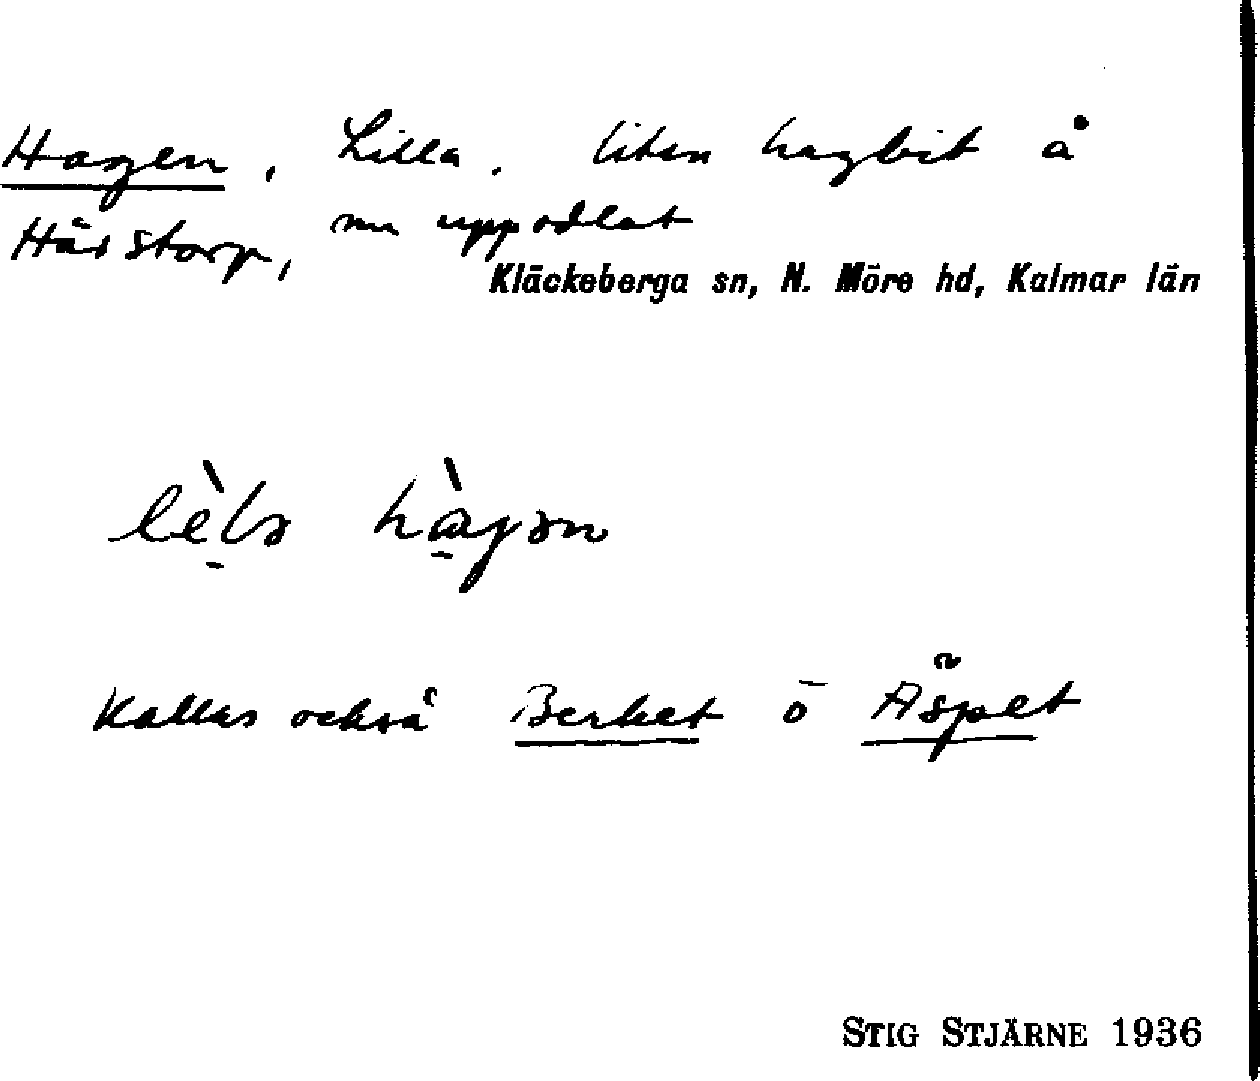 Hagen, Lilla. liten hagbit å
Härstorp, nu uppodlat
Kläckeberga sn, N. Möre hd, Kalmar län
Kallas också Berket o Äspet
STIG STJÄRNE 1936